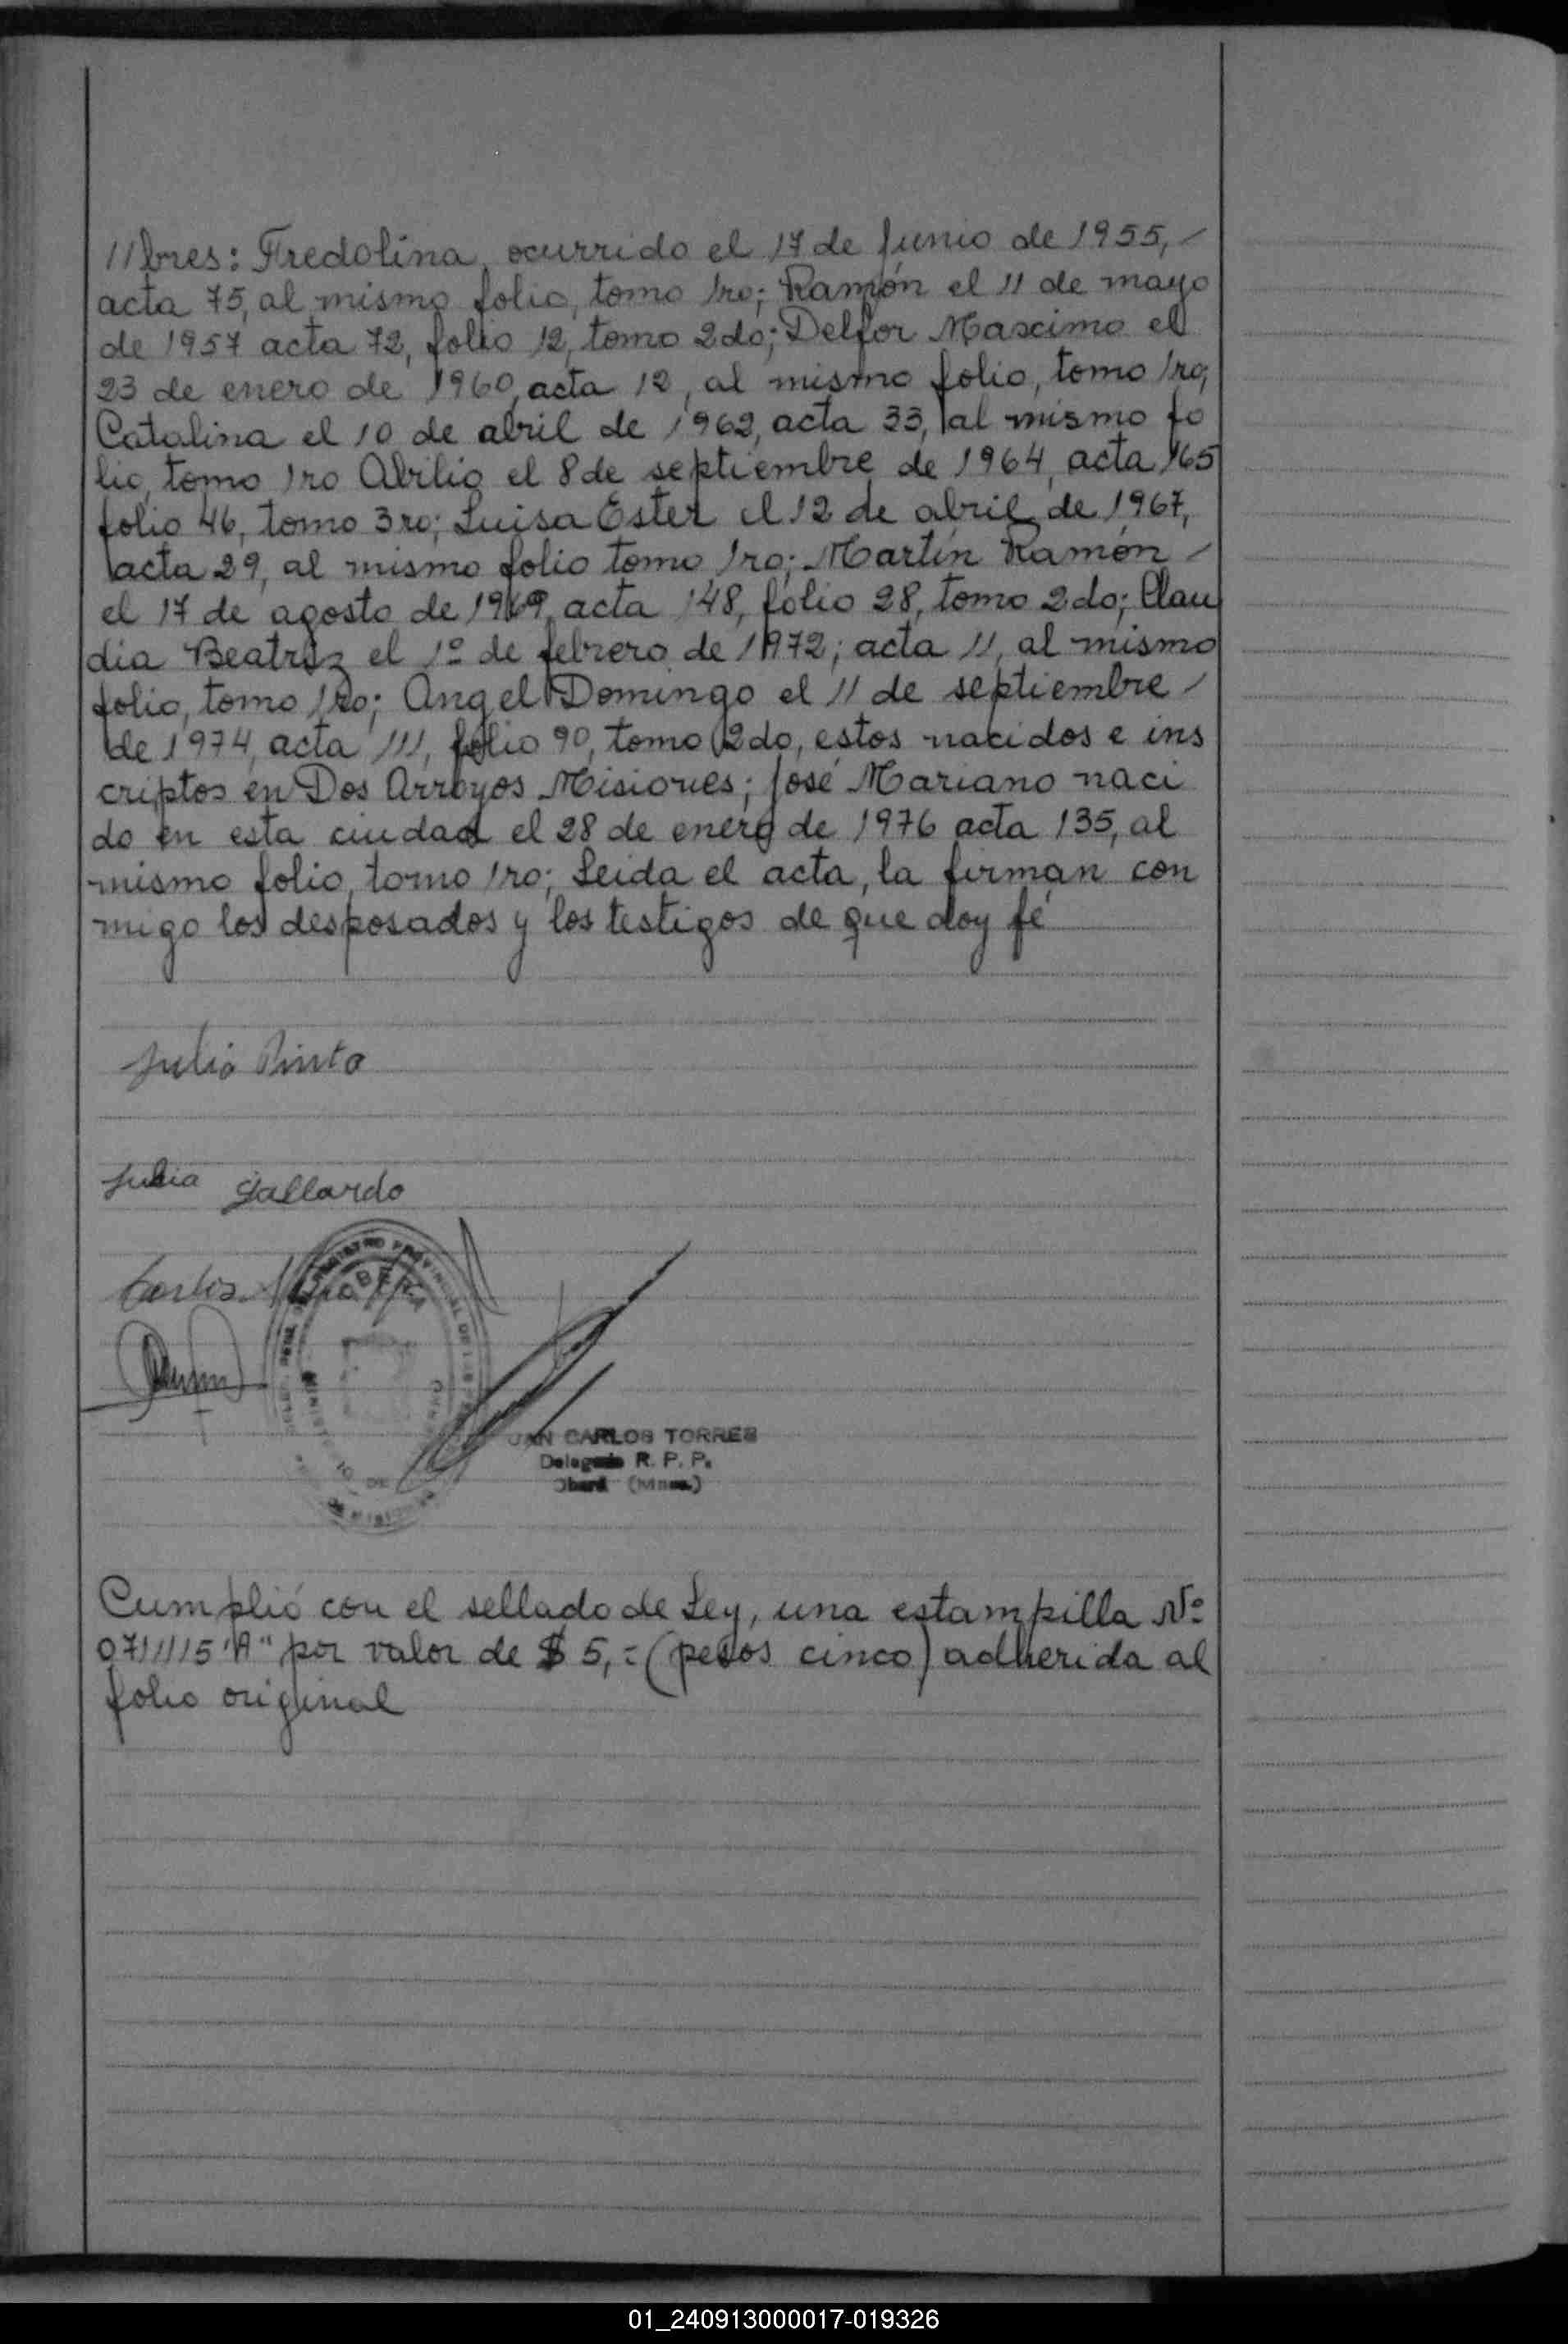 //bres: Fredolina, ocurrido el 17 de Junio de 1955, /
acta 75, al mismo folio, tomo 1ro; Ramón el 11 de mayo
de 1957 acta 72, folio 12, tomo 2do; Delfor Maximo el
23 de enero de 1960, acta 12, al mismo folio, tomo 1ro;
Catalina el 10 de abril de 1962, acta 33, al mismo fo
lio, tomo 1ro Abilio el 8 de septiembre de 1964, acta 165
folio 46, tomo 3ro; Luisa Ester el 12 de abril de 1967,
acta 29, al mismo folio tomo 1ro; Martín Ramón /
el 17 de agosto de 1969, acta 148, folio 28, tomo 2do; Clau
dia Beatriz el 1º de febrero de 1972; acta 11, al mismo
folio, tomo 1ro; Angel Domingo el 11 de septiembre /
de 1974, acta 111, folio 90, tomo 2do, estos nacidos e ins
criptos en Dos Arroyos Misiones; José Mariano naci
do en esta ciudad el 28 de enero de 1976 acta 135, al
mismo folio, tomo 1ro; Leida el acta, la firman con
migo los desposados y los testigos de que doy fé
Julio Pinto
Julia Gallardo
Carlos
JUAN CARLOS TORRES
Delegado R. P. P.
Oberá (Mnes.)
Cumplió con el sellado de Ley, una estampilla Nº
0711115 "A" por valor de $ 5,= (pesos cinco) adherida al
folio original
01_240913000017-019326